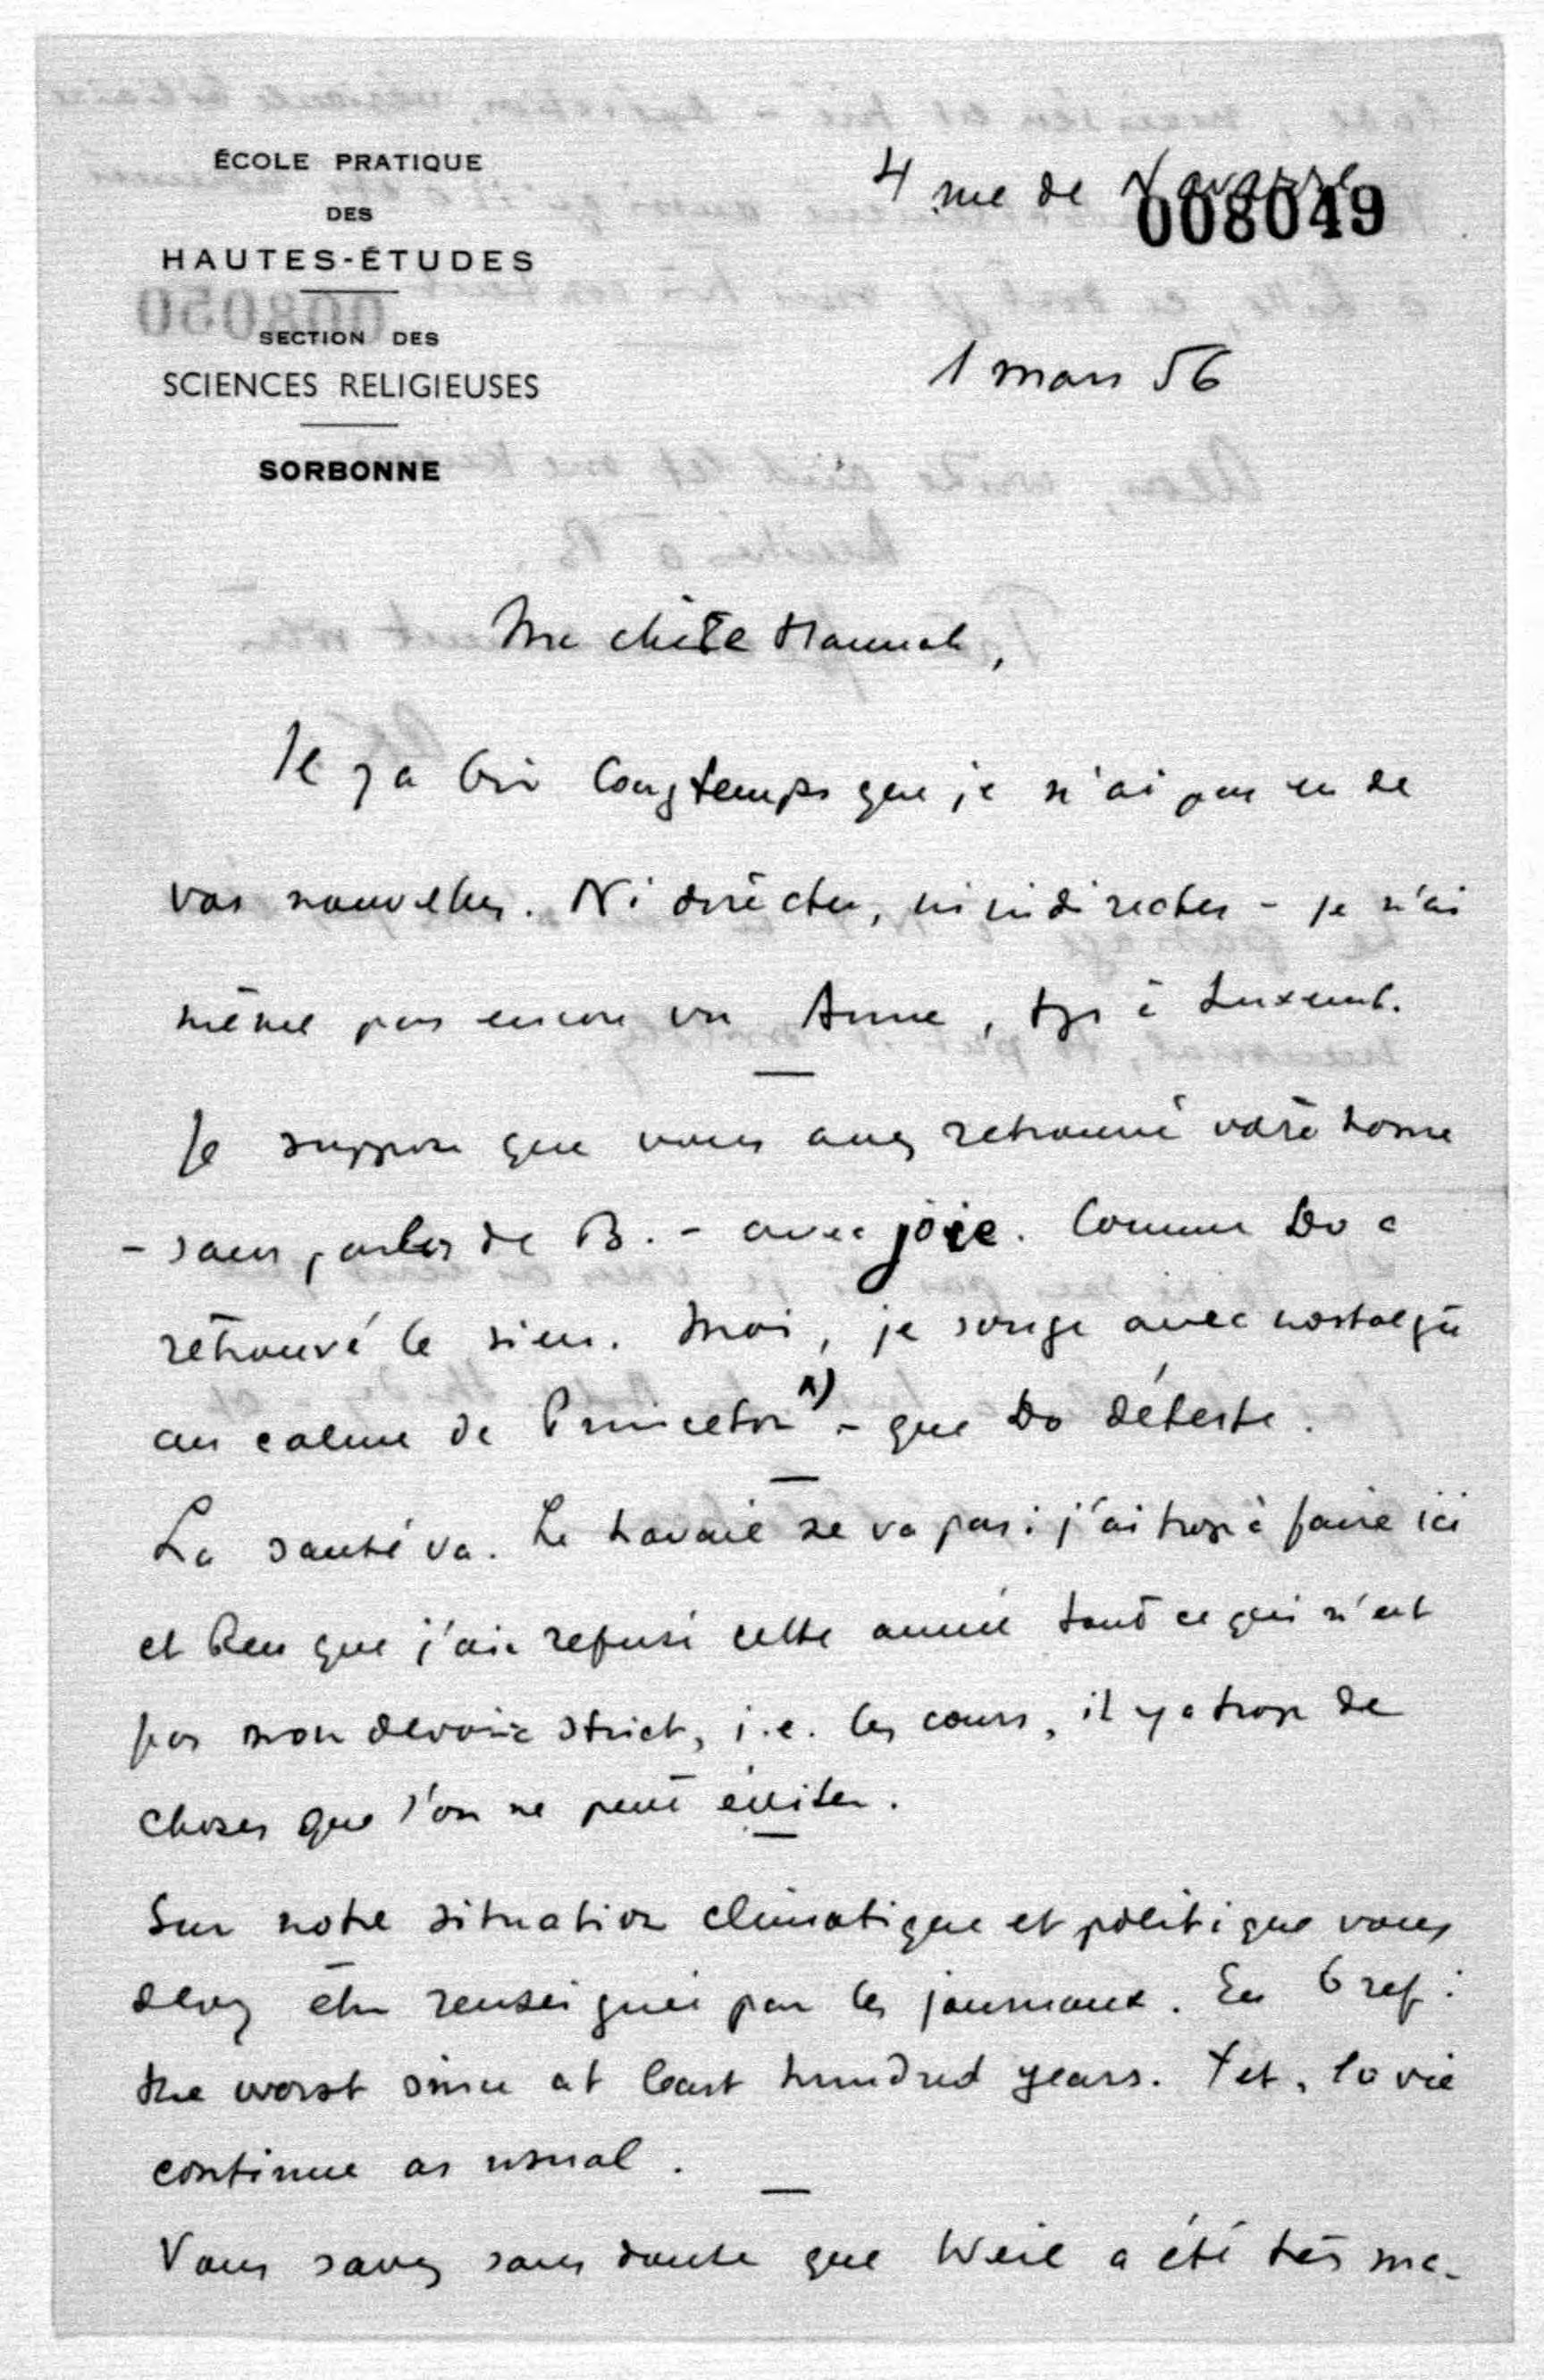 ÉCOLE PRATIQUE
DES
HAUTES-ÉTUDES
SECTION DES
SCIENCES RELIGIEUSES
SORBONNE
4 rue de Navarre
008049
1 mars 56
Ma chère Hannah,
Il y a bien longtemps que je n'ai pas eu de
vos nouvelles. Ni directes, ni indirectes - je n'ai
même pas encore vu Anne, tjs à Luxemb.
Je suppose que vous avez retrouvé votre home
- sans parler de B. - avec joie. Comme Do a
retrouvé le sien. Moi, je songe avec nostalgie
au calme de Princeton x) - que Do déteste.
La santé va. Le travail ne va pas: j'ai trop à faire ici
et bien que j'aie refusé cette année tout ce qui n'est
pas mon devoir strict, i.e. les cours, il y a trop de
choses que l'on ne peut éviter.
Sur notre situation climatique et politique vous
devez être renseignée par les journaux. En bref:
the worst since at least hundred years. Yet, la vie
continue as usual.
Vous savez sans doute que Weil a été très ma-